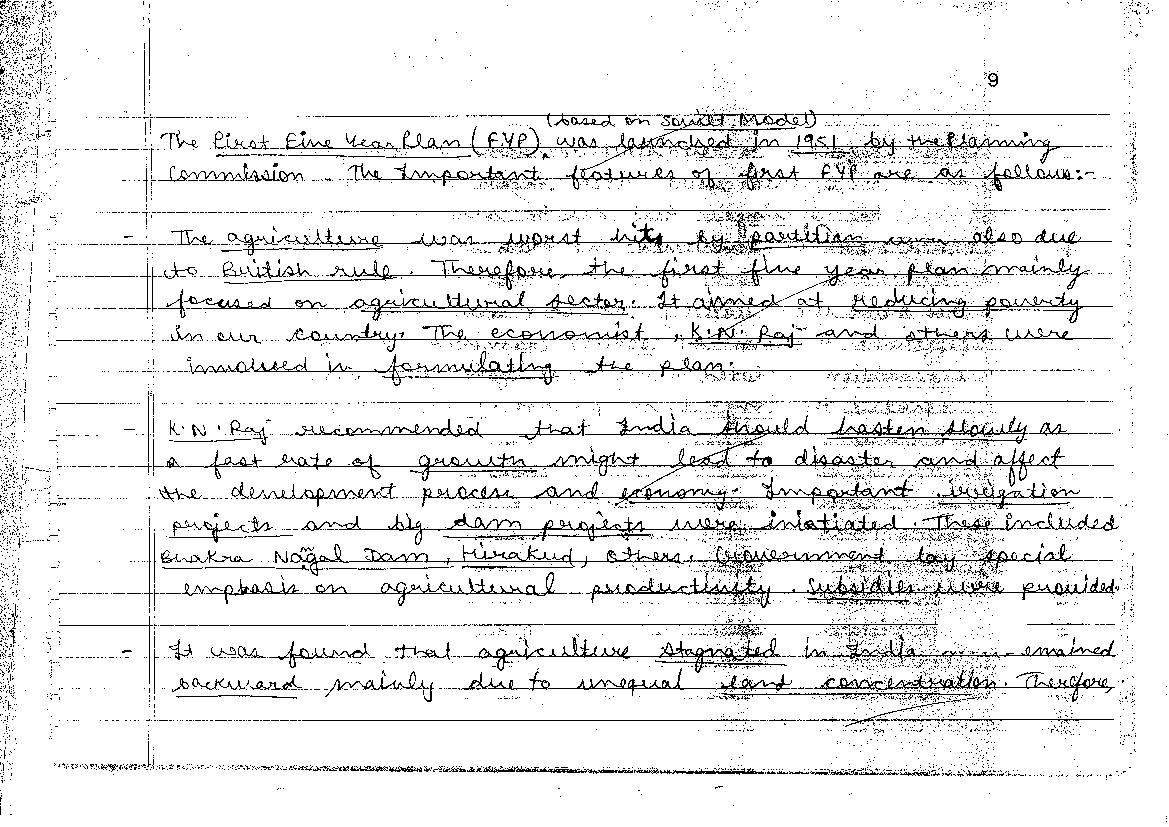 9
(based on Soviet Model)
The First Five Year Plan (FYP) was launched in 1951 by the Planning
Commission. The Important features of first FYP are as follows:-
- The agriculture was worst hit by partition also due
to British rule. Therefore, the first five year plan mainly
focused on agricultural sector. It aimed at reducing poverty
in our country. The economist, K.N. Raj and others were
involved in formulating the plan.
- K.N. Raj recommended that India should hasten slowly as
a fast rate of growth might lead to disaster and affect
the development process and economy. Important irrigation
projects and big dam projects were iniatiated. These included
Bhakra Nagal Dam, Hirakud, others. Government lay special
emphasis on agricultural productivity. Subsidies were provided.
- It was found that agriculture stagnated in India emained
backward mainly due to unequal land concentration. Therefore,